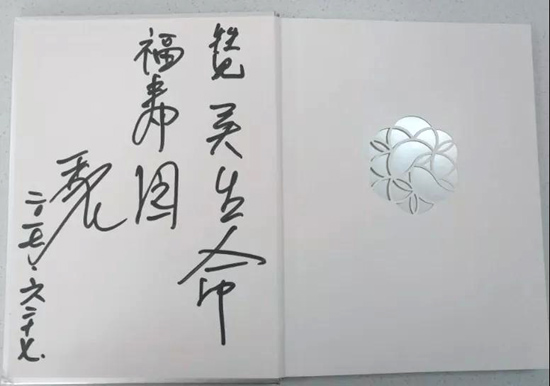 赞美生命
福寿园
二〇一七.六.二十七.